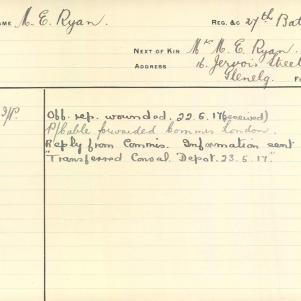 AME M. E. Ryan. REG. &C 27th Bat
NEXT OF KIN Mrs M. E. Ryan.
ADDRESS 16. Jervois Street
Glenelg. F
Off. rep. wounded. 22.5.17 (received)
P/Cable forwarded Commis London.
Reply from Commis. Information sent
"Transferred Consal. Depot. 23.5.17."